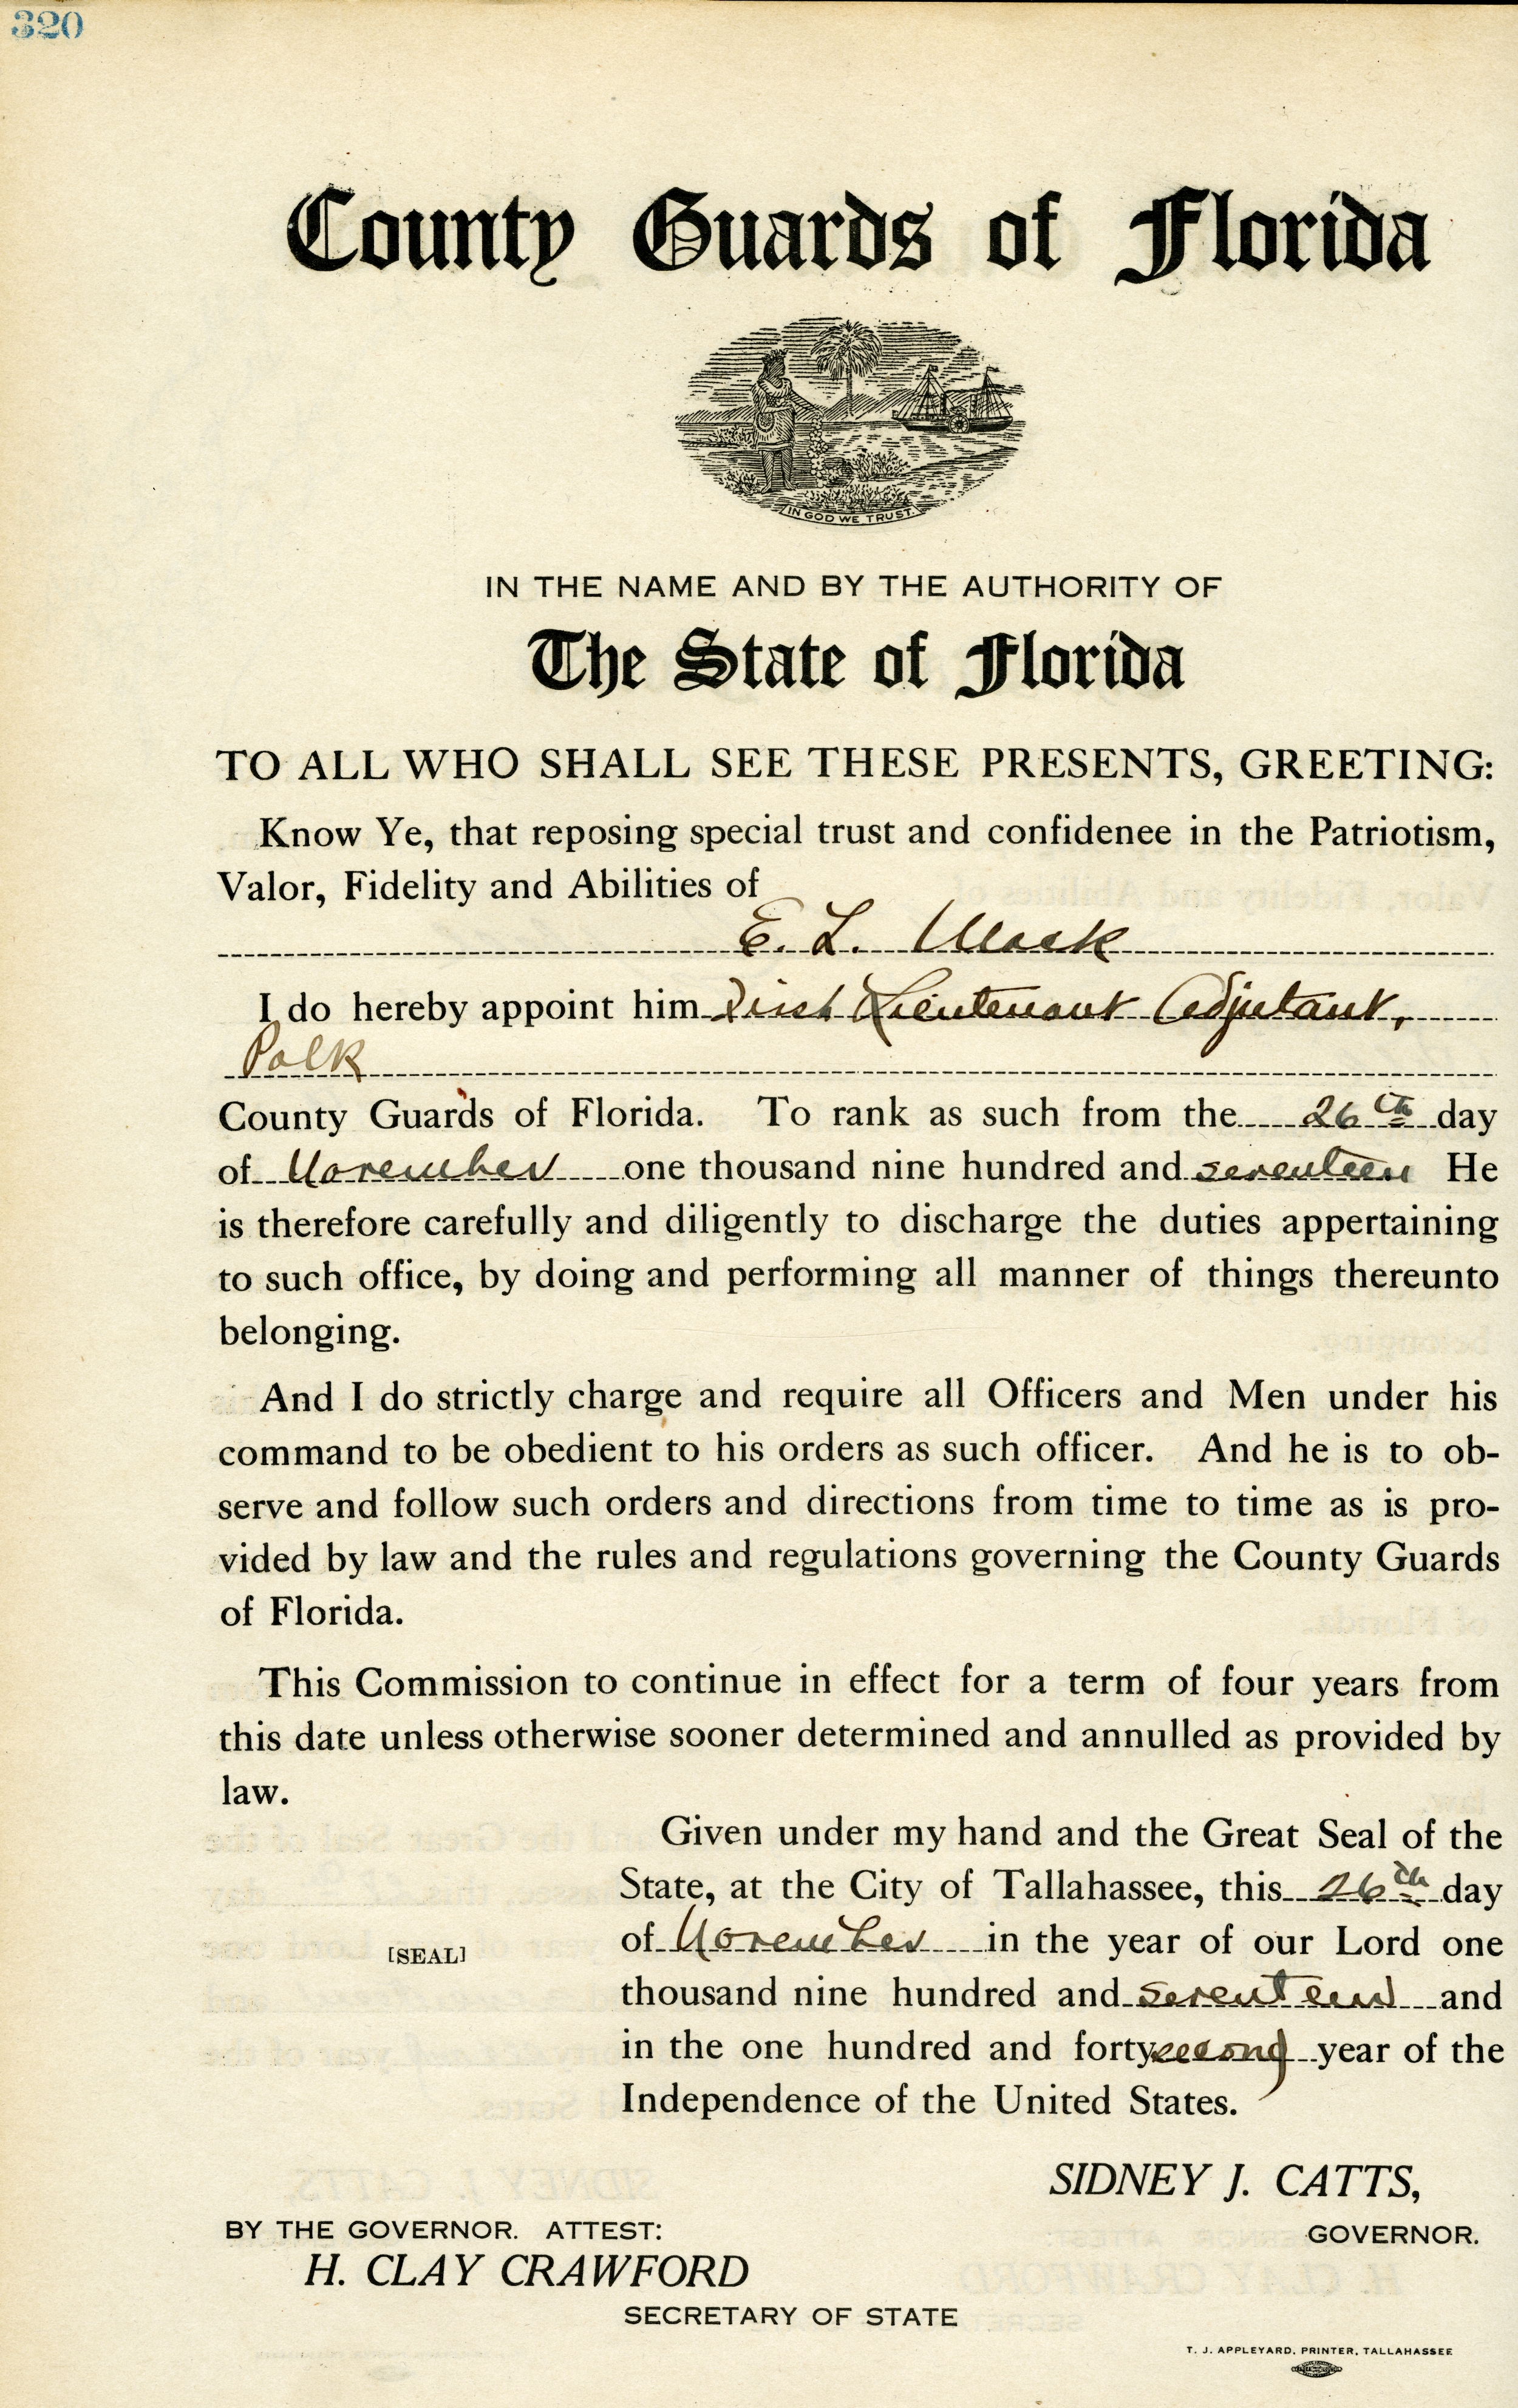 320
County Guards of Florida
IN GOD WE TRUST.
IN THE NAME AND BY THE AUTHORITY OF
The State of Florida
TO ALL WHO SHALL SEE THESE PRESENTS, GREETING:
Know Ye, that reposing special trust and confidenee in the Patriotism,
Valor, Fidelity and Abilities of
E. L. Mack
I do hereby appoint him First Lieutenant Adjutant,
Polk
County Guards of Florida. To rank as such from the 26th day
of November one thousand nine hundred and seventeen He
is therefore carefully and diligently to discharge the duties appertaining
to such office, by doing and performing all manner of things thereunto
belonging.
And I do strictly charge and require all Officers and Men under his
command to be obedient to his orders as such officer. And he is to ob-
serve and follow such orders and directions from time to time as is pro-
vided by law and the rules and regulations governing the County Guards
of Florida.
This Commission to continue in effect for a term of four years from
this date unless otherwise sooner determined and annulled as provided by
law.
Given under my hand and the Great Seal of the
State, at the City of Tallahassee, this 26th day
of November in the year of our Lord one
[SEAL]
thousand nine hundred and seventeen and
in the one hundred and forty second year of the
Independence of the United States.
SIDNEY J. CATTS,
GOVERNOR.
BY THE GOVERNOR. ATTEST:
H. CLAY CRAWFORD
SECRETARY OF STATE
T. J. APPLEYARD, PRINTER, TALLAHASSEE